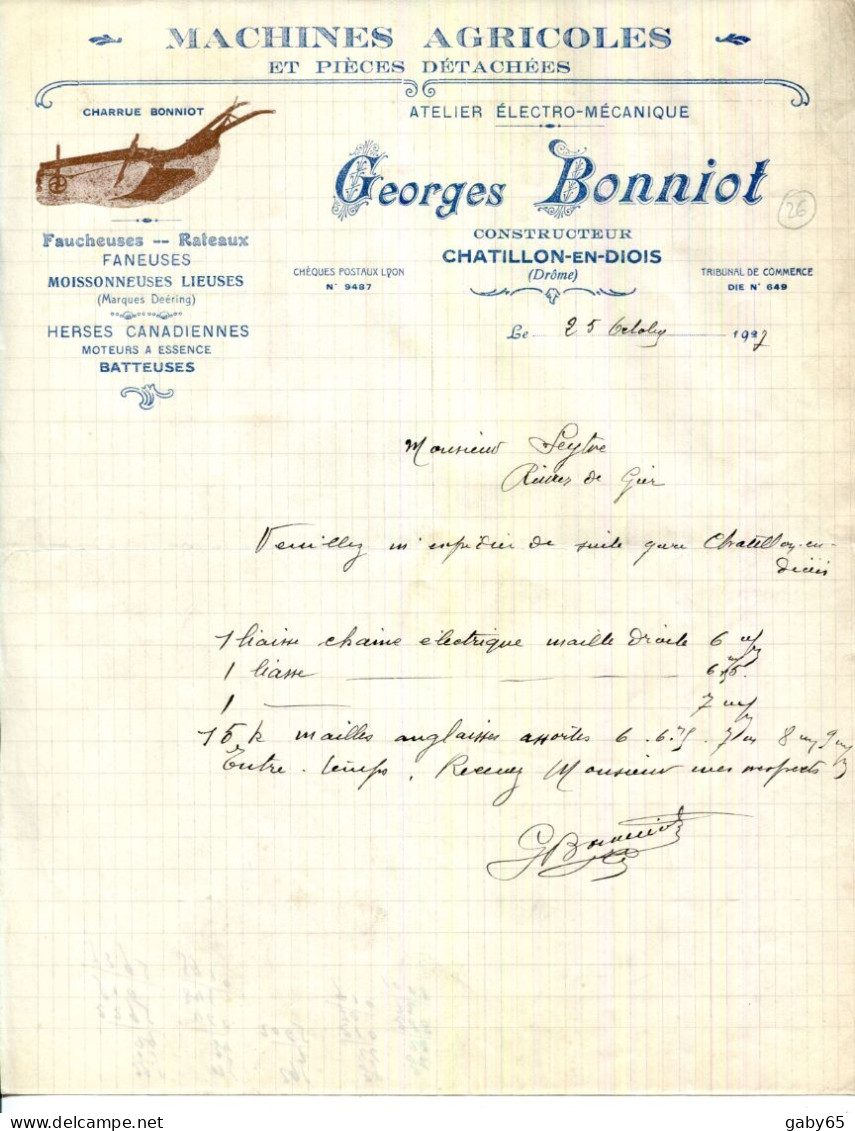 MACHINES AGRICOLES
ET PIÈCES DÉTACHÉES
CHARRUE BONNIOT
ATELIER ÉLECTRO-MÉCANIQUE
Georges Bonniot
26
CONSTRUCTEUR
CHATILLON-EN-DIOIS
(Drôme)
Faucheuses -- Rateaux
FANEUSES
MOISSONNEUSES LIEUSES
(Marques Deéring)
HERSES CANADIENNES
MOTEURS A ESSENCE
BATTEUSES
CHÈQUES POSTAUX LYON
N° 9487
TRIBUNAL DE COMMERCE
DIE N° 649
Le 25 Octobre 1927
Monsieur Seytre
Rives de Gier
Veuillez m'expédier de suite gare Chatillon-en-
diois
1 liasse chaine électrique maille droite 6 m/m
1 liasse 6.75
1 7 m/m
15 k mailles anglaises assorties 6 . 6.75 . 7 m 8 m 9 m/m
Entre-temps, Recevez Monsieur mes respects
G Bonniot
gaby65